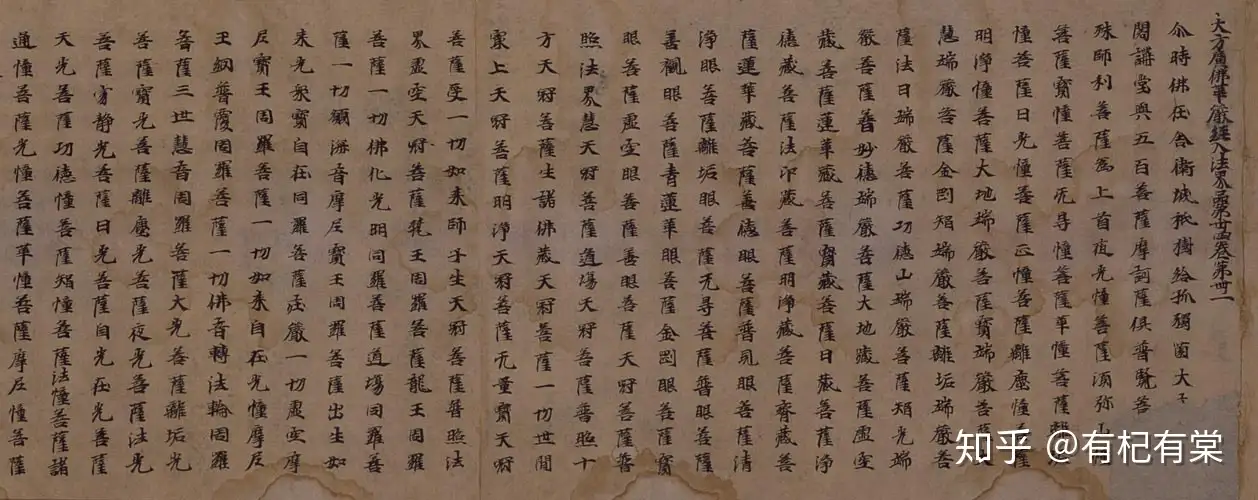 大方廣佛華嚴經入法界品第卅四卷第卌一
尒時佛在舍衛城祇樹給孤獨薗大
閣講堂與五百菩薩摩訶薩俱普賢菩
殊師利菩薩為上首夜光憧菩薩須弥山
菩薩寶憧菩薩无㝵憧菩薩華憧菩薩
憧菩薩日光憧菩薩正憧菩薩離塵憧薩
明淨憧菩薩大地端嚴菩薩寶端嚴菩
慧端嚴菩薩金剛智端嚴菩薩離垢端嚴菩
薩法日端嚴菩薩功德山端嚴菩薩智光端
嚴菩薩普妙德端嚴菩薩大地藏菩薩虛空
藏菩薩蓮華藏菩薩寶藏菩薩日藏菩薩淨
德藏菩薩法印藏菩薩明淨藏菩薩齊藏菩
薩蓮華藏菩薩善德眼菩薩普見眼菩薩清
淨眼菩薩離垢眼菩薩无㝵菩薩普眼菩薩
善觀眼菩薩青蓮華眼菩薩金剛眼菩薩寶
眼菩薩虛空眼菩薩善眼菩薩天冠菩薩普
照法界慧天冠菩薩道場天冠菩薩普照十
方天冠菩薩生諸佛藏天冠菩薩一切世間
寂上天冠菩薩明淨天冠菩薩无量寶天冠
菩薩受一切如来師子坐天冠菩薩普照法
界虛空天冠菩薩梵王周羅菩薩龍王周羅
菩薩一切佛化光明周羅菩薩道場周羅菩
薩一切願海音摩尼寶王周羅菩薩出生如
来光衆寶自在周羅菩薩莊嚴一切虛空摩
尼寶王周羅菩薩一切如来自在光憧摩尼
王網普覆周羅菩薩一切佛音轉法輪周羅
菩薩三世慧音周羅菩薩大光菩薩離垢光
菩薩寶光菩薩離塵光菩薩夜光菩薩法光
菩薩寂静光菩薩日光菩薩自光在光菩薩
天光菩薩功德憧菩薩智憧菩薩法憧菩薩諸
通憧菩薩光憧菩薩華憧菩薩摩尼憧菩薩
知乎 @有杞有棠